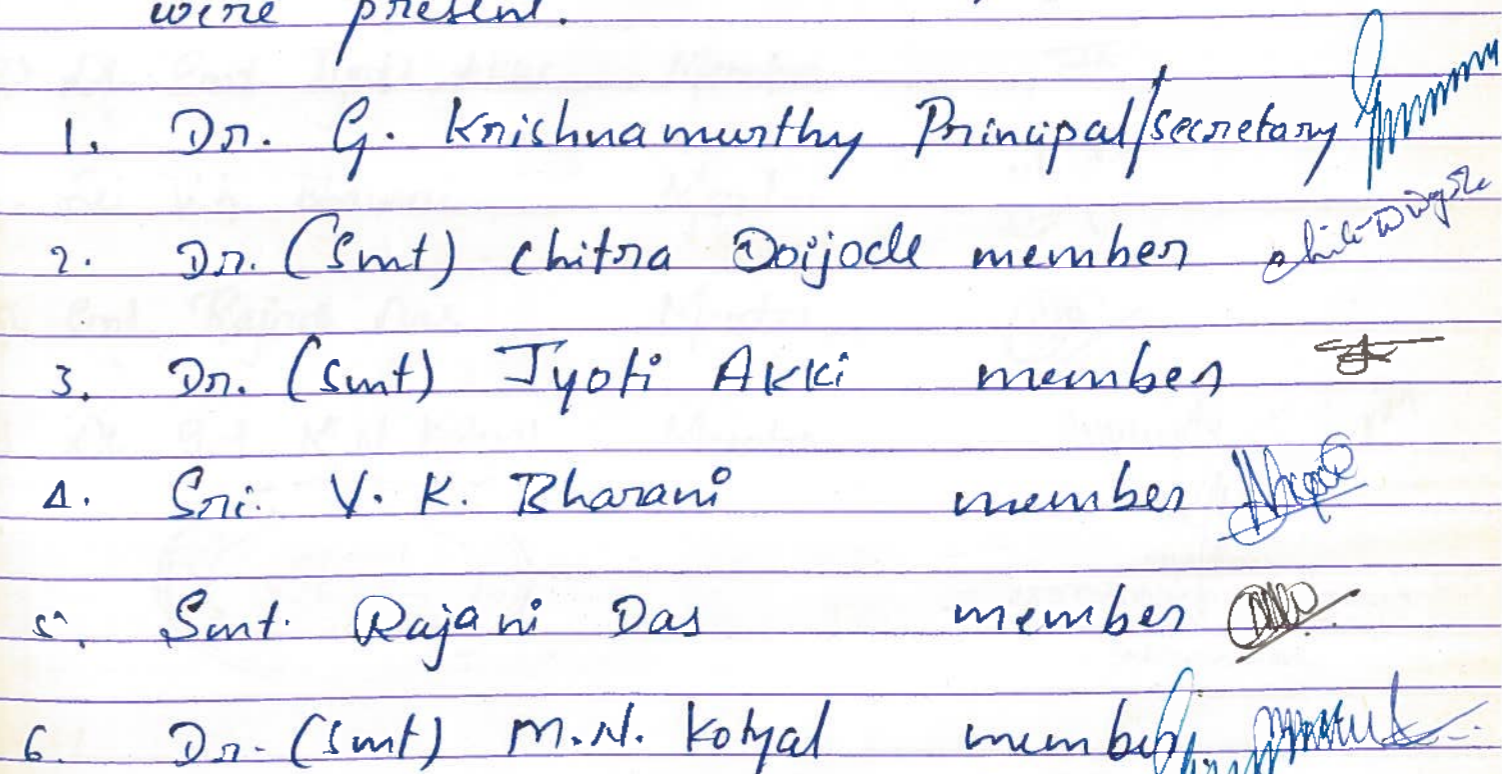 were present.
1. Dr. G. Krishnamurthy Principal/secretary
2. Dr. (Smt) Chitra Doijode member
3. Dr. (Smt) Jyoti Akki member
4. Sri. V. K. Bharani member
5. Smt. Rajani Das member
6. Dr. (Smt) M.N. Kotyal member